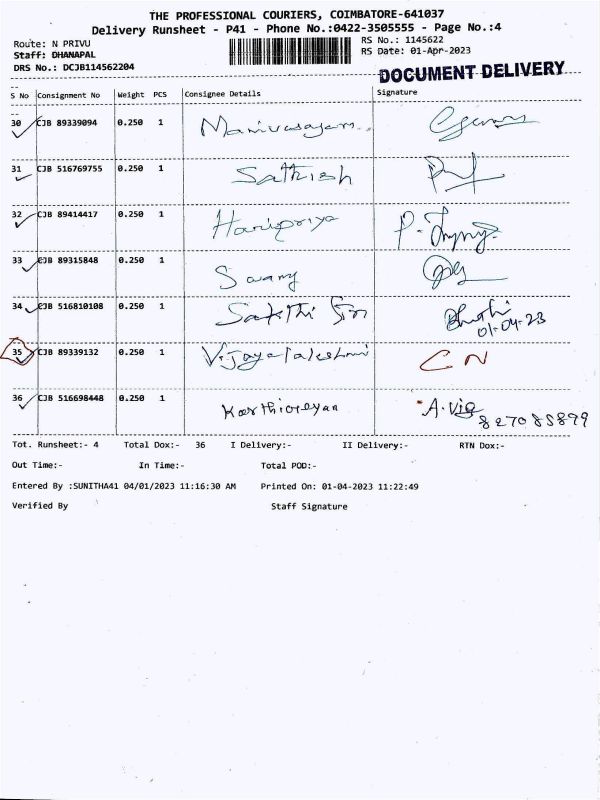 THE PROFESSIONAL COURIERS, COIMBATORE-641037
Delivery Runsheet - P41 - Phone No.:0422-3505555 - Page No.:4
Route: N PRIVU
RS No.: 1145622
Staff: DHANAPAL
RS Date: 01-Apr-2023
DRS No.: DCJB114562204
DOCUMENT DELIVERY
S No Consignment No Weight PCS Consignee Details Signature
30 CJB 89339094 0.250 1 Manivasagam
31 CJB 516769755 0.250 1 Sathish
32 CJB 89414417 0.250 1 Haripriya
33 CJB 89315848 0.250 1 Swamy
34 CJB 516810108 0.250 1 Sakthi Sri
01-04-23
35 CJB 89339132 0.250 1 Vijayalakshmi CN
36 CJB 516698448 0.250 1 Karthikeyan
Tot. Runsheet:- 4 Total Dox:- 36 I Delivery:- II Delivery:- RTN Dox:-
Out Time:- In Time:- Total POD:-
Entered By :SUNITHA41 04/01/2023 11:16:30 AM Printed On: 01-04-2023 11:22:49
Verified By Staff Signature